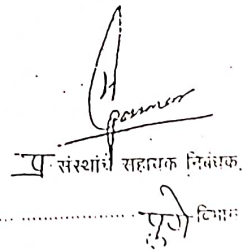 प्र संस्थांचे सहायक निबंधक.
पुणे विभाग